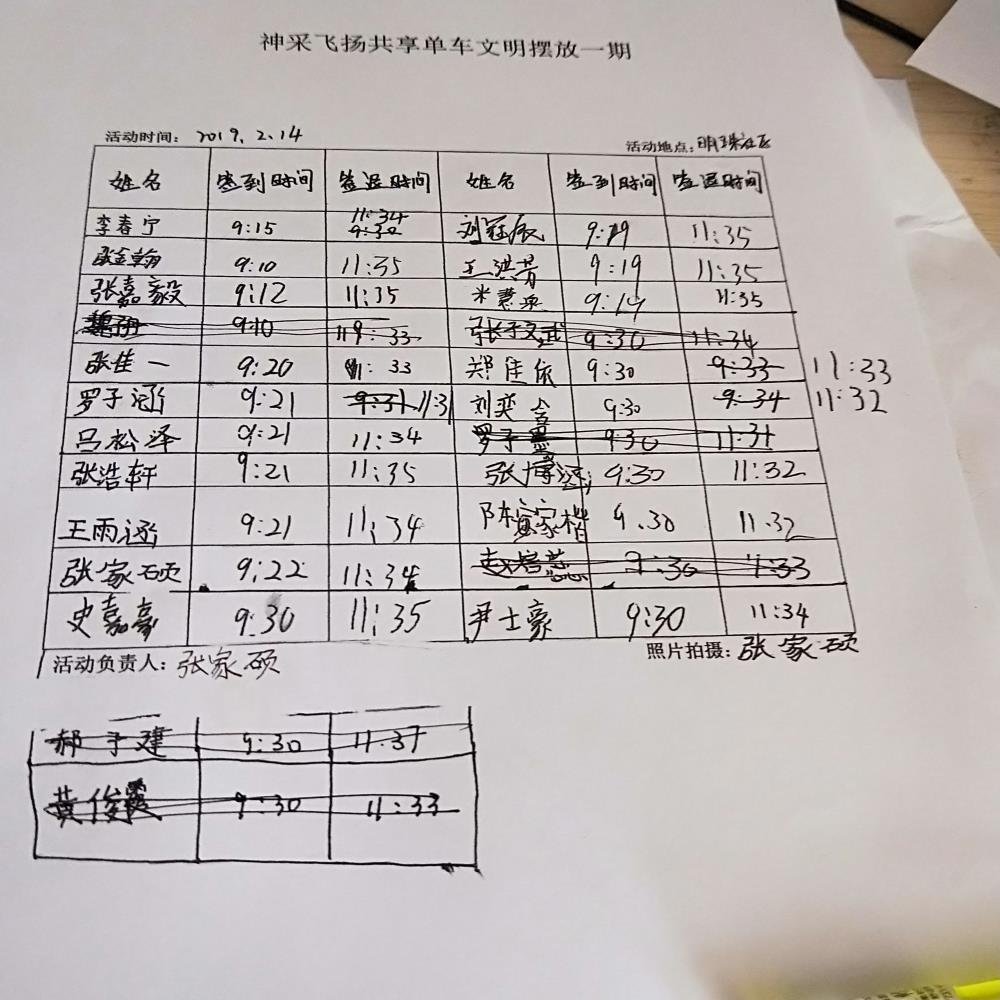 神采飞扬共享单车文明摆放一期
活动时间： 2019.2.14 活动地点：明珠社区
姓名 签到时间 签退时间 姓名 签到时间 签退时间
李春宁 9:15 11:34 9:30 刘冠辰 9:19 11:35
张金翰 9:10 11:35 王淇芳 9:19 11:35
张嘉毅 9:12 11:35 米慧 9:19 11:35
9:10 119:33 张子文武 9:30 11:34
张佳一 9:20 11:33 郑佳依 9:30 9:33 11:33
罗子涵 9:21 9:31 11:31 刘奕含 9:30 9:34 11:32
吕松泽 9:21 11:34 罗子墨 9:30 11:31
张浩轩 9:21 11:35 张博涵 9:30 11:32
王雨涵 9:21 11:34 陈家楷 9.30 11:32
张家硕 9:22 11:34 赵培蕊 9:30 9:33
史嘉豪 9:30 11:35 尹士豪 9:30 11:34
活动负责人：张家硕 照片拍摄：张家硕
郝子建 9:30 11:37
黄俊霞 9:30 11:33